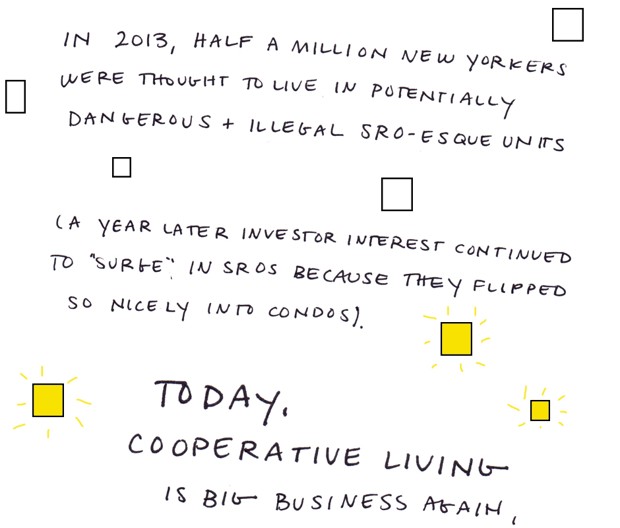 IN 2013, HALF A MILLION NEW YORKERS
WERE THOUGHT TO LIVE IN POTENTIALLY
DANGEROUS + ILLEGAL SRO-ESQUE UNITS
(A YEAR LATER INVESTOR INTEREST CONTINUED
TO "SURGE" IN SROS BECAUSE THEY FLIPPED
SO NICELY INTO CONDOS).
TODAY,
COOPERATIVE LIVING
IS BIG BUSINESS AGAIN,